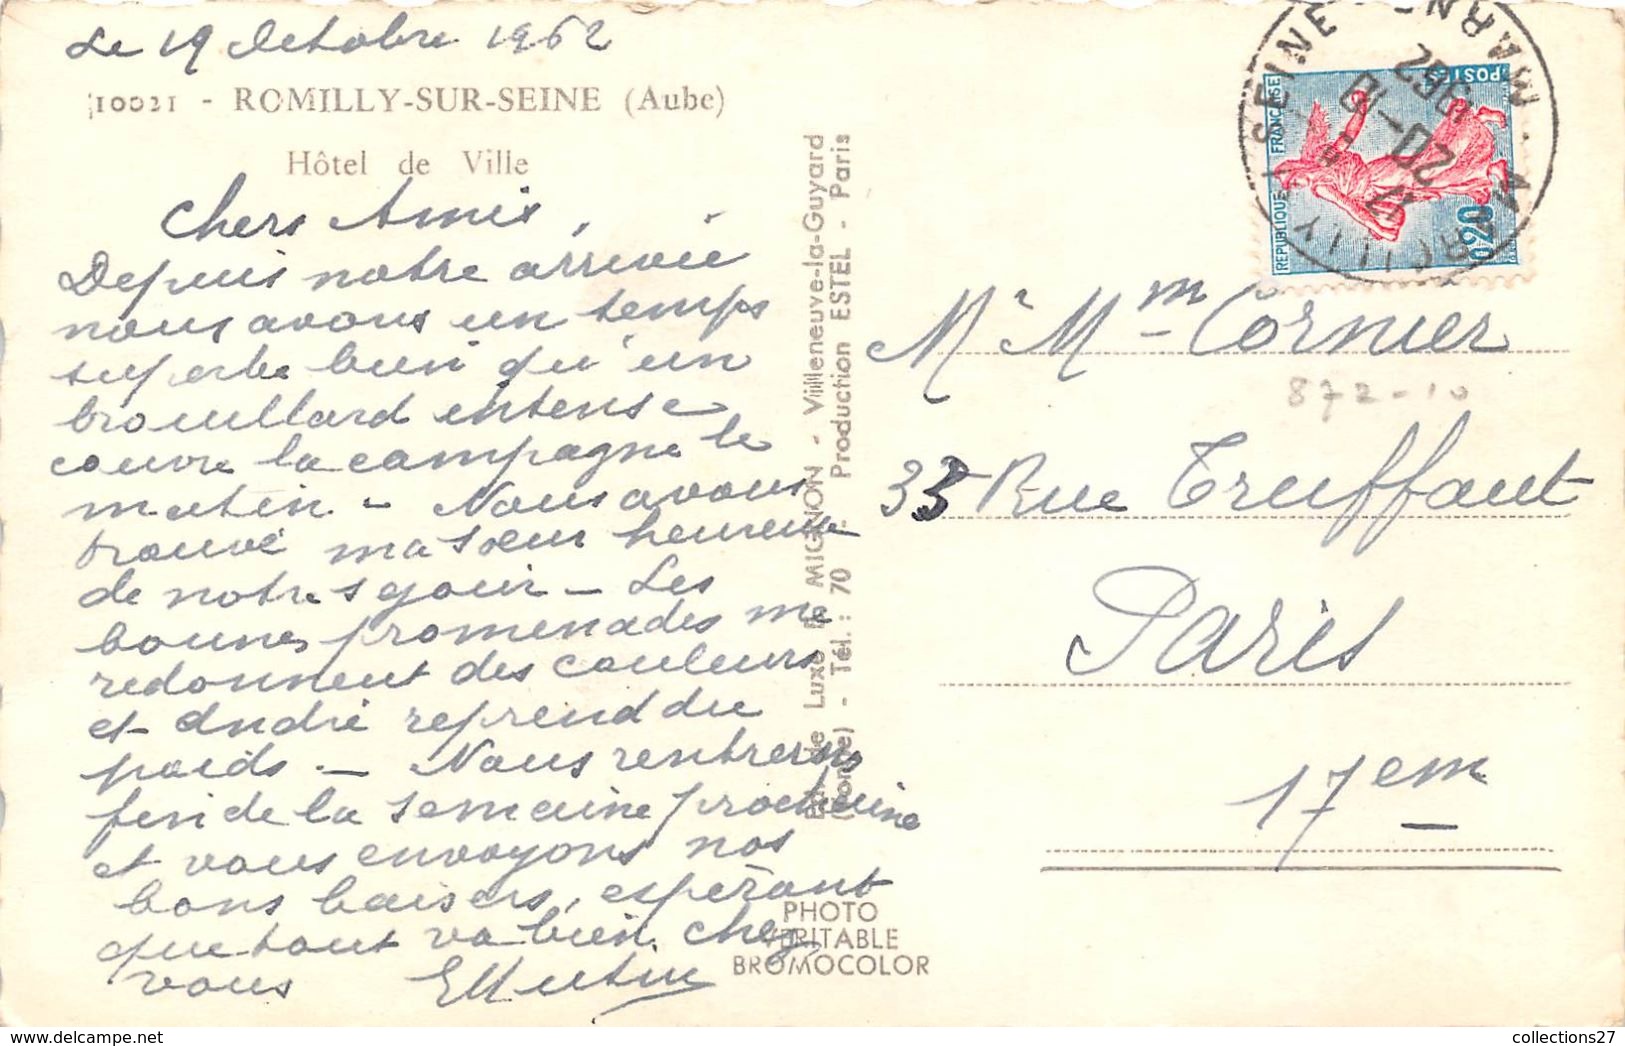 Le 19 Octobre 1962
10021 - ROMILLY-SUR-SEINE (Aube)
Hôtel de Ville
Chers Amis,
Depuis notre arrivée
nous avons un temps
superbe bien qu'un
brouillard intense
couvre la campagne le
matin - Nous avons
trouvé ma soeur heureuse
de notre séjour - Les
bonnes promenades me
redonnent des couleurs
et André reprend du
poids - Nous rentrerons
fin de la semaine prochaine
et vous envoyons nos
bons baisers, espérant
que tout va bien chez
vous
Edit. de Luxe MIGNON - Villeneuve-la-Guyard
(Yonne) - Tél. : 70 - Production ESTEL - Paris
PHOTO
VERITABLE
BROMOCOLOR
REPUBLIQUE FRANÇAISE
POSTES
0,20
MARCILLY S SEINE - MARNE
17
20-10
1962
Mr Mme Cornier
872-10
33 Rue Truffaut
Paris
17em
collections27